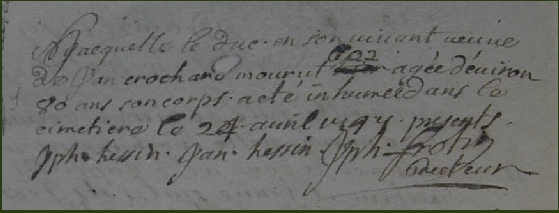 Jacquette le duc en son vivant veuve
de Jan crochard mourut agée d'éuiron
80 ans son corps a eté inhumée dans le
cimetiere le 24 auril presents
Jph. hessin. Jan. hessin Jph.
Recteur